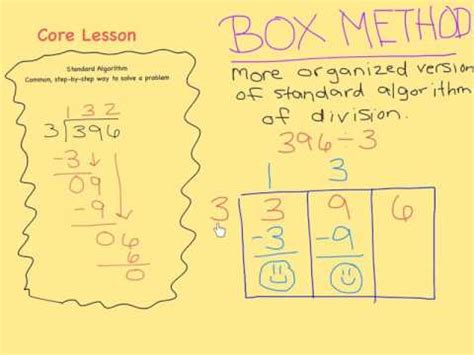 Core Lesson
Standard Algorithm
Common, step-by-step way to solve a problem
132
3)396
-3
09
-9
06
6
0
BOX METHOD
More organized version
of standard algorithm
of division.
396÷3
1 3
3 3 9 6
-3 -9